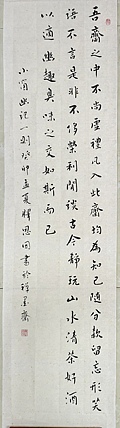 吾齋之中不尚虛禮凡入此齋均為知己隨分款留忘形笑
語不言是非不侈榮利閒談古今靜玩山水清茶好酒
以適幽趣臭味之交如斯而已
小窗幽記一則癸卯孟夏恩固書於齋